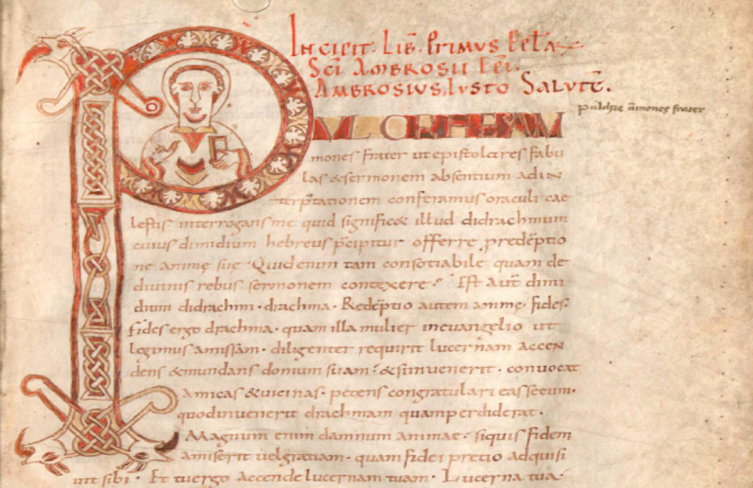 Incipit Lib Primus Epla
Sci Ambrosii Epi
Ambrosius Iusto Salute.
pulchre amones frater
PULCHRE AM
mones frater ut epistolares fabu
las & sermonem absentium ad in
terp̄tationem conferamus oraculi cae
lestis interrogans me quid signific& illud didrachmum
cuius dimidium hebreus p̄cipitur offerre p redēptio
ne animę suę. Quid enim tam consotiabile quam de
diuinis rebus sermonem contexere. Est aut dimi
dium didrachmi. drachma. Redēptio autem animę fides.
Fides ergo drachma. quam illa mulier in euangelio ut
legimus amissam. diligenter requirit lucernam accen
dens & mundans domum suam. & si inuenerit. conuocat
amicas & uicinas. petens congratulari eas secum.
quod inuenerit drachmam quam perdiderat.
Magnum enim damnum animae. siquis fidem
amiserit uel gratiam. quam fidei pretio adquisi
uit sibi. Et tu ergo accende lucernam tuam. Lucerna tua.